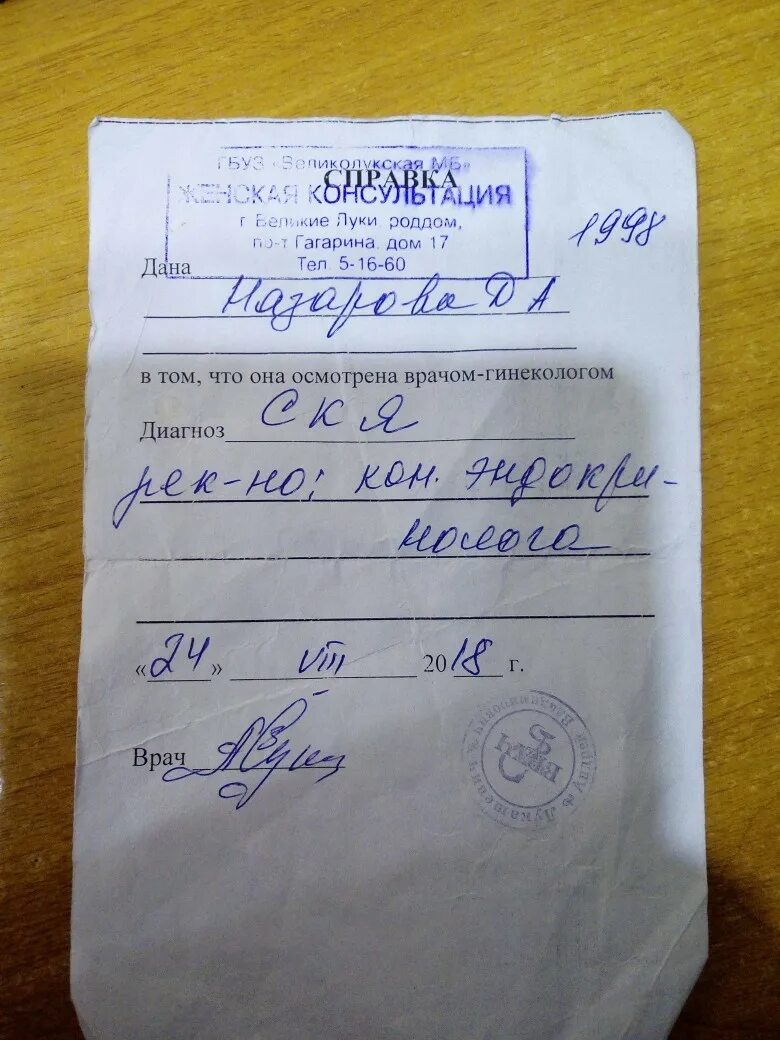 ГБУЗ «Великолукская МБ»
СПРАВКА
ЖЕНСКАЯ КОНСУЛЬТАЦИЯ
г Великие Луки, роддом,
пр-т Гагарина, дом 17
Тел. 5-16-60
1998
Дана
Назарова Д А
в том, что она осмотрена врачом-гинекологом
Диагноз СКЯ
рек-но: кон. эндокри-
нолога
«24» VIII 2018 г.
Врач
ВРАЧ
Лукашевич Андрей Владимирович